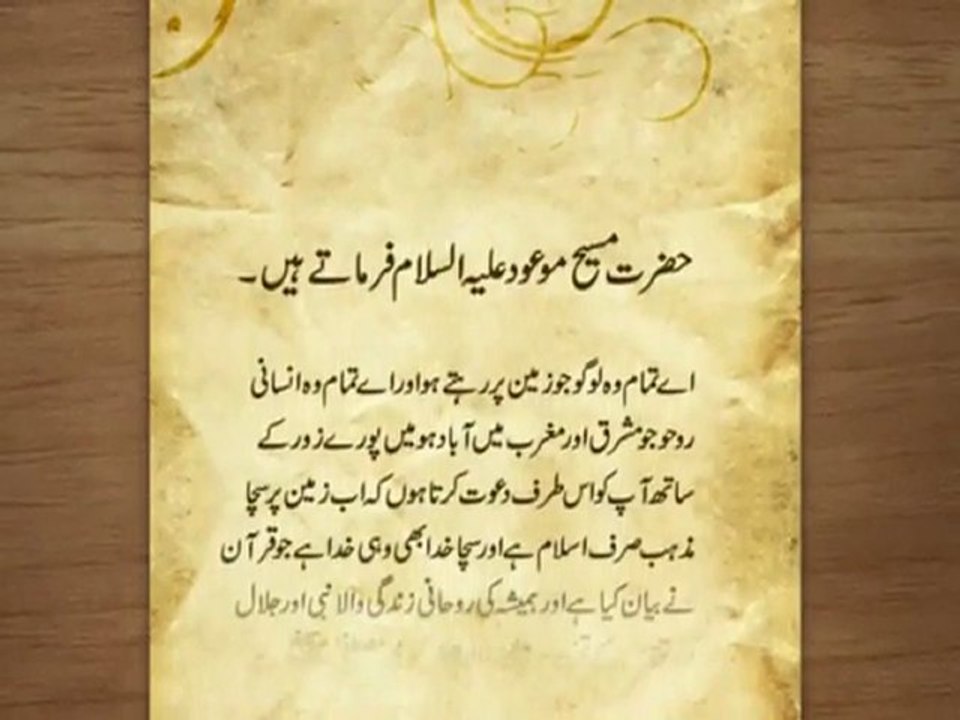 حضرت مسیح موعود علیہ السلام فرماتے ہیں۔
اے تمام وہ لوگو جو زمین پر رہتے ہو اور اے تمام وہ انسانی
روحو جو مشرق اور مغرب میں آباد ہو میں پورے زور کے
ساتھ آپ کو اس طرف دعوت کرتا ہوں کہ اب زمین پر سچا
مذہب صرف اسلام ہے اور سچا خدا بھی وہی خدا ہے جو قرآن
نے بیان کیا ہے اور ہمیشہ کی روحانی زندگی والا نبی اور جلال